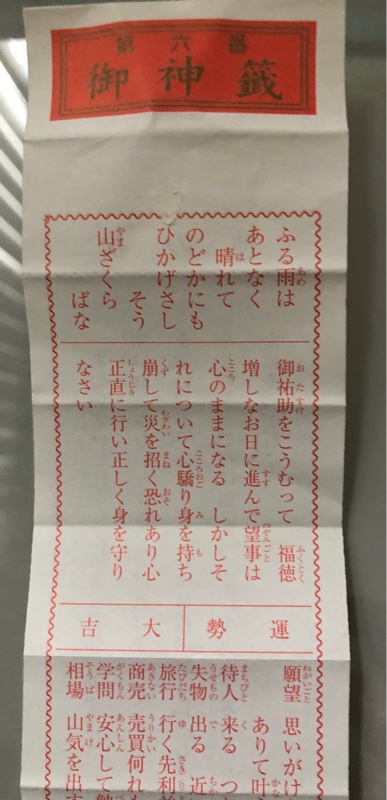 第六番
御神籤
ふる雨は
あとなく
晴れて
のどかにも
ひかげさし
そう
山ざくら
ばな
御祐助をこうむって　福徳
増しなお日に進んで望事は
心のままになる　しかしそ
れについて心驕り身を持ち
崩して災を招く恐れあり心
正直に行い正しく身を守り
なさい
運勢
大吉
願望　思いがけ
ありて叶
待人　来る　つ
失物　出る　近
旅行　行く先利
商売　売買何れも
学問　安心して
相場　山気を出す